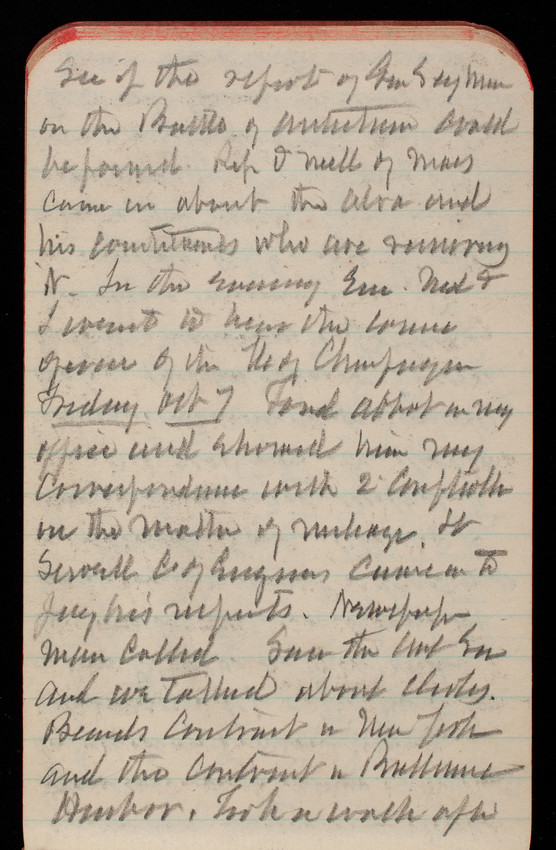 See if the report of Gen Seymour
on the Battle of Antietam could
be found. Rep O'Neill of Mass
came in about the and
his constituents who are
it. In the evening Em. Ned &
I went to hear the comic
opera of the of Champagne
Friday Oct 7 Found Abbot in my
office and showed him my
Correspondence with 2 Comptroller
on the matter of mileage. Lt
Sewell C of Engineers came in to
pay his respects. Newspaper
man called Saw the Act Sec
and we talked about
Beards Contract in New York
and the Contract in Baltimore
Harbor. Took a walk after